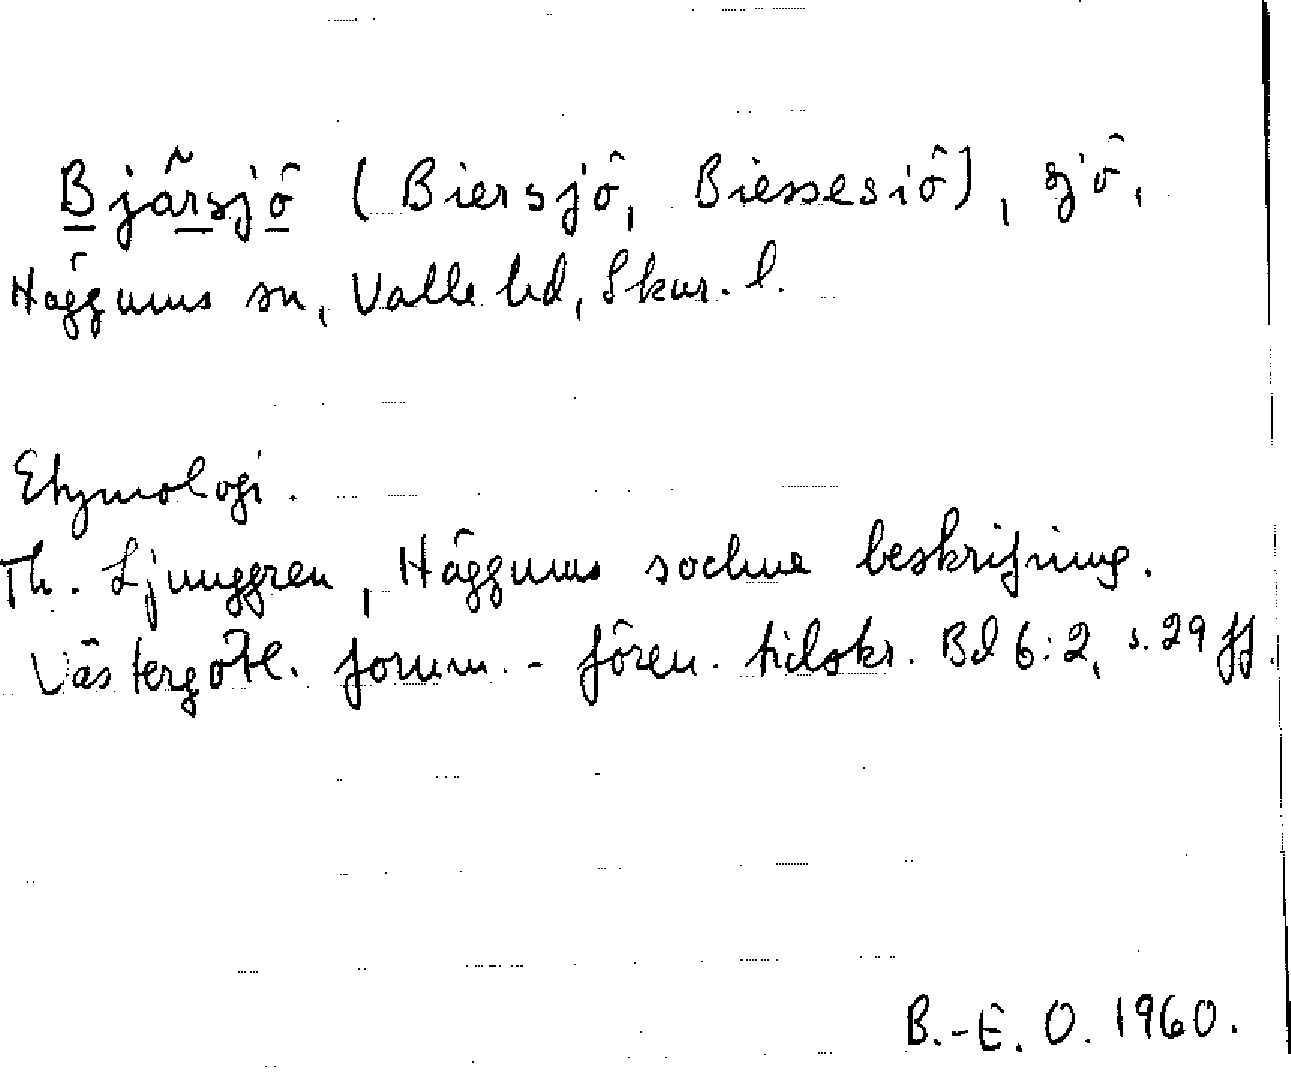 Bjärsjö (Biersjö, Biessesiö), sjö,
Häggums sn, Valle hd, Skar. l.
Etymologi.
Th. Ljunggren, Häggums sockens beskrifning.
Västergötl. fornm.-fören. tidskr. Bd 6:2, s. 29 ff.
B.-E. O. 1960.